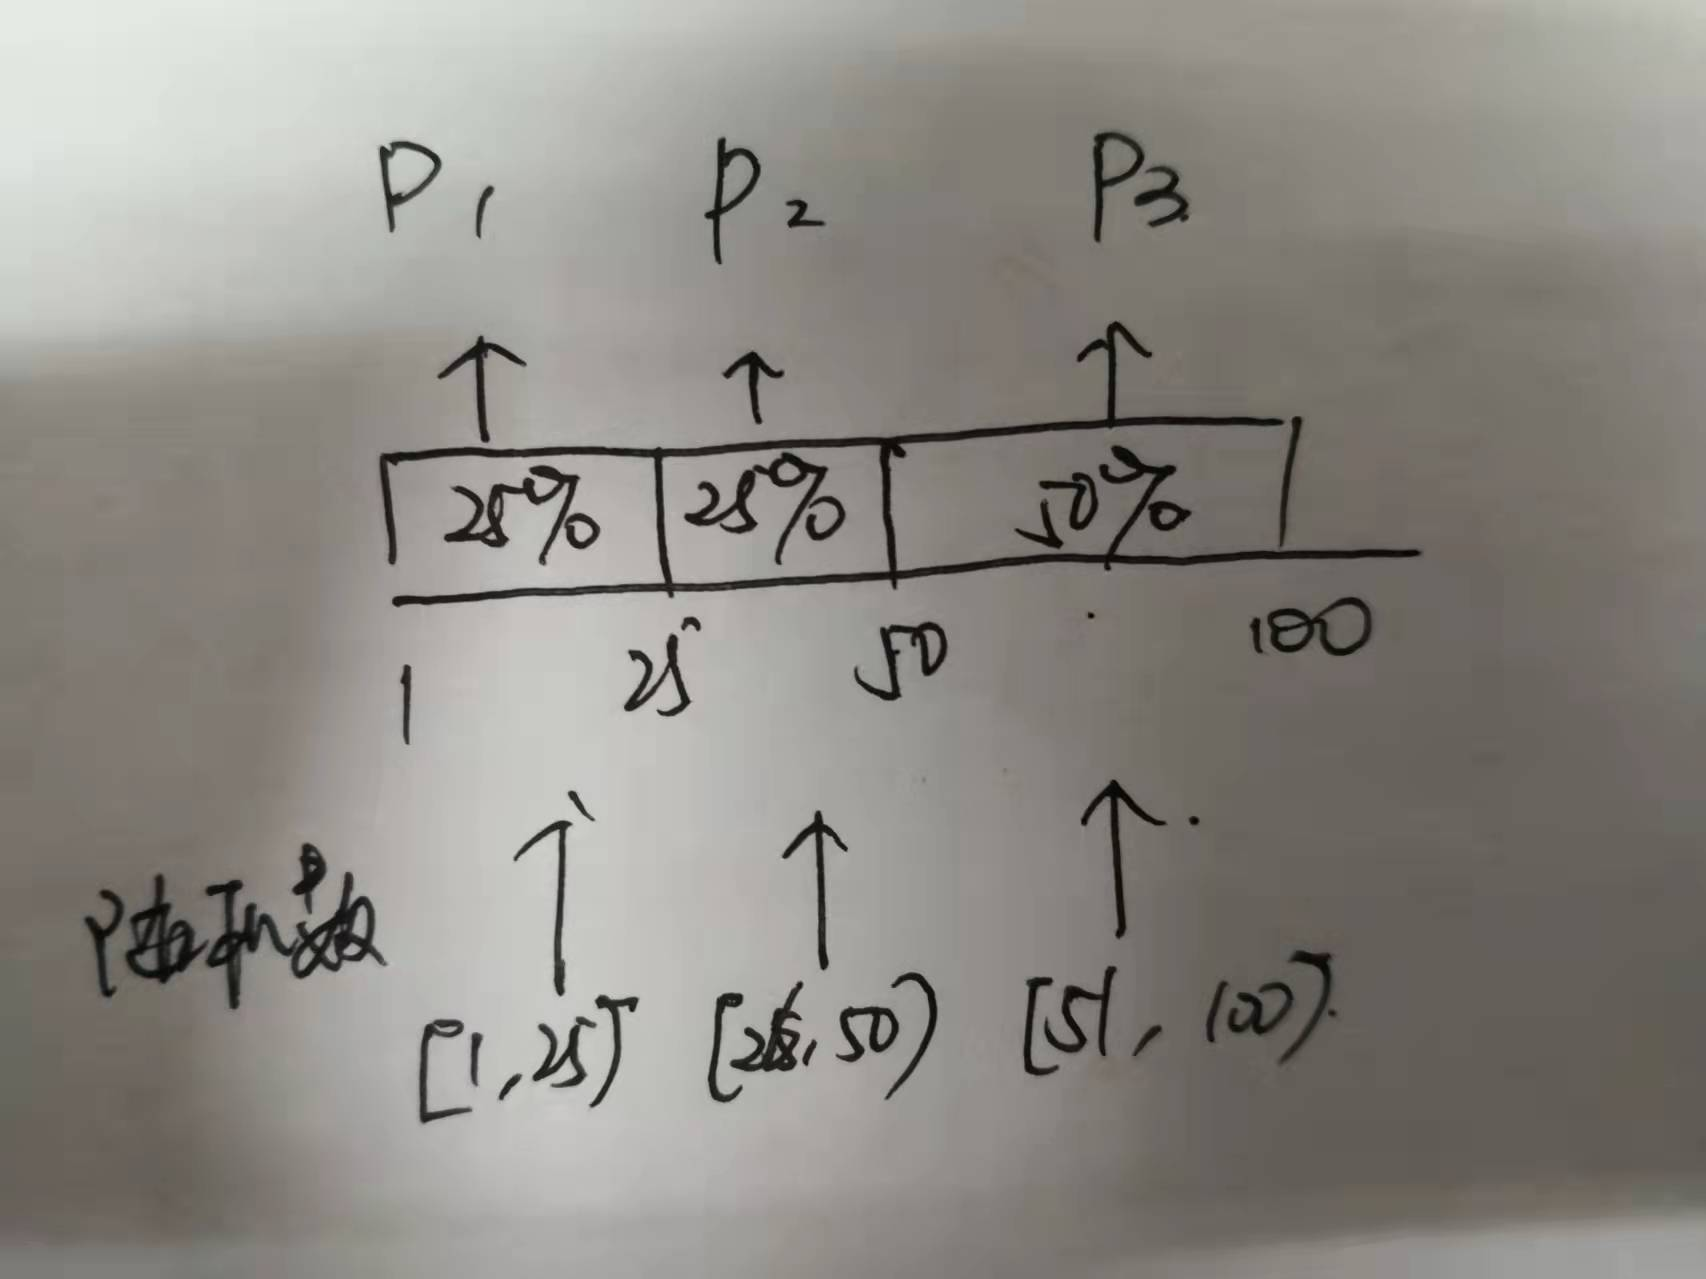 P1 P2 P3
25% 25% 50%
1 25 50 100
随机数
[1,25] [26,50) [51,100]